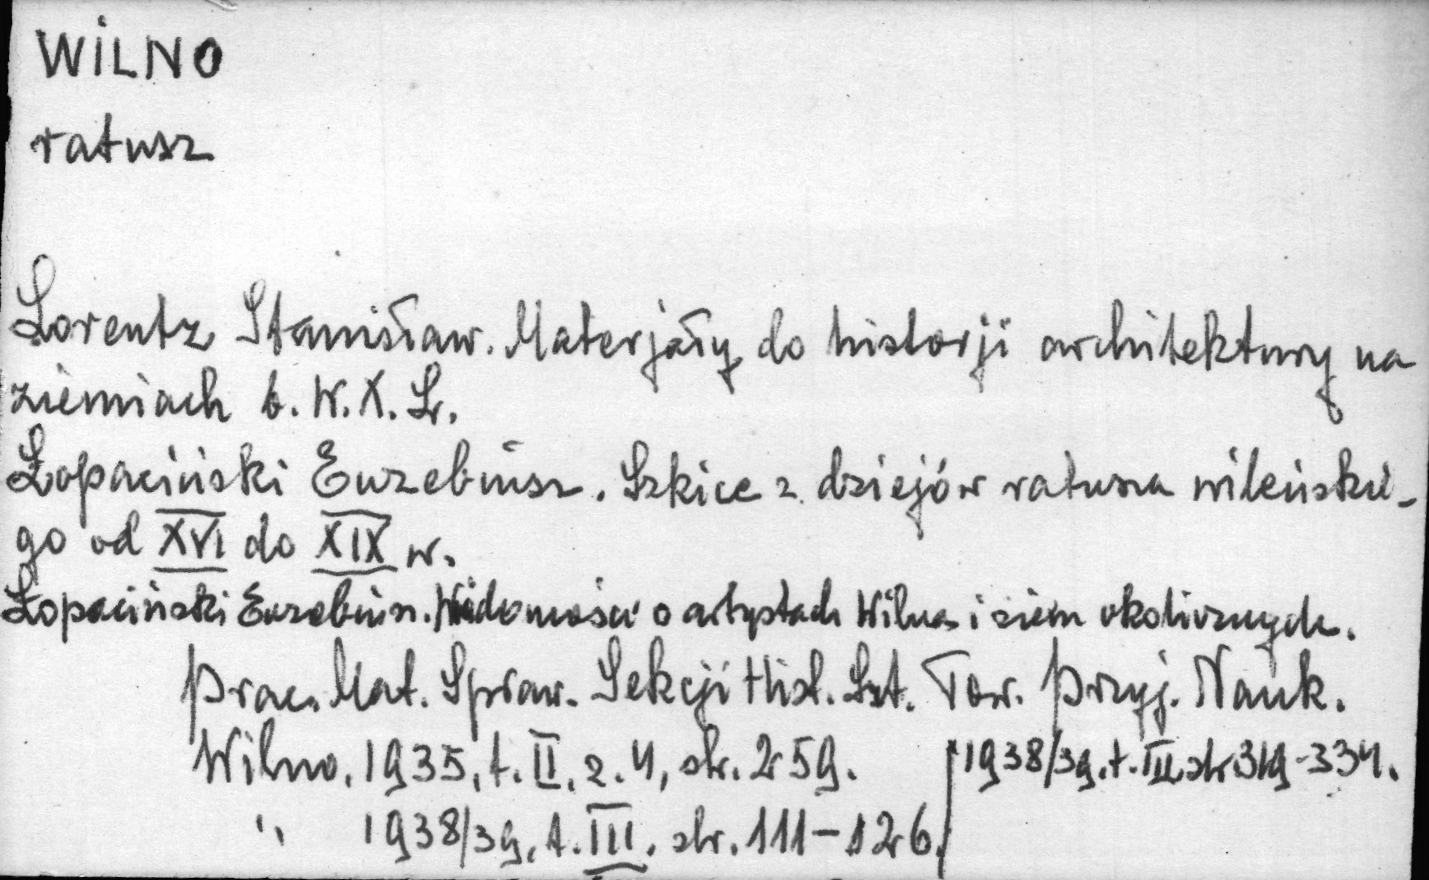 WILNO
ratusz
Lorentz Stanisław. Materjały do historji architektury na
ziemiach b. W. X. L.
Łopaciński Euzebiusz. Szkice z dziejów ratusza wileńskie-
go od XVI do XIX w.
Łopaciński Euzebiusz. Wiadomości o artystach Wilna i ziem okolicznych.
Prac. Mat. Spraw. Sekcji Hist. Szt. Tow. Przyj. Nauk.
Wilno, 1935, t. II, z. 4, str. 259. | 1938/39, t. III, str. 319-334.
" 1938/39, t. III, str. 111-126.